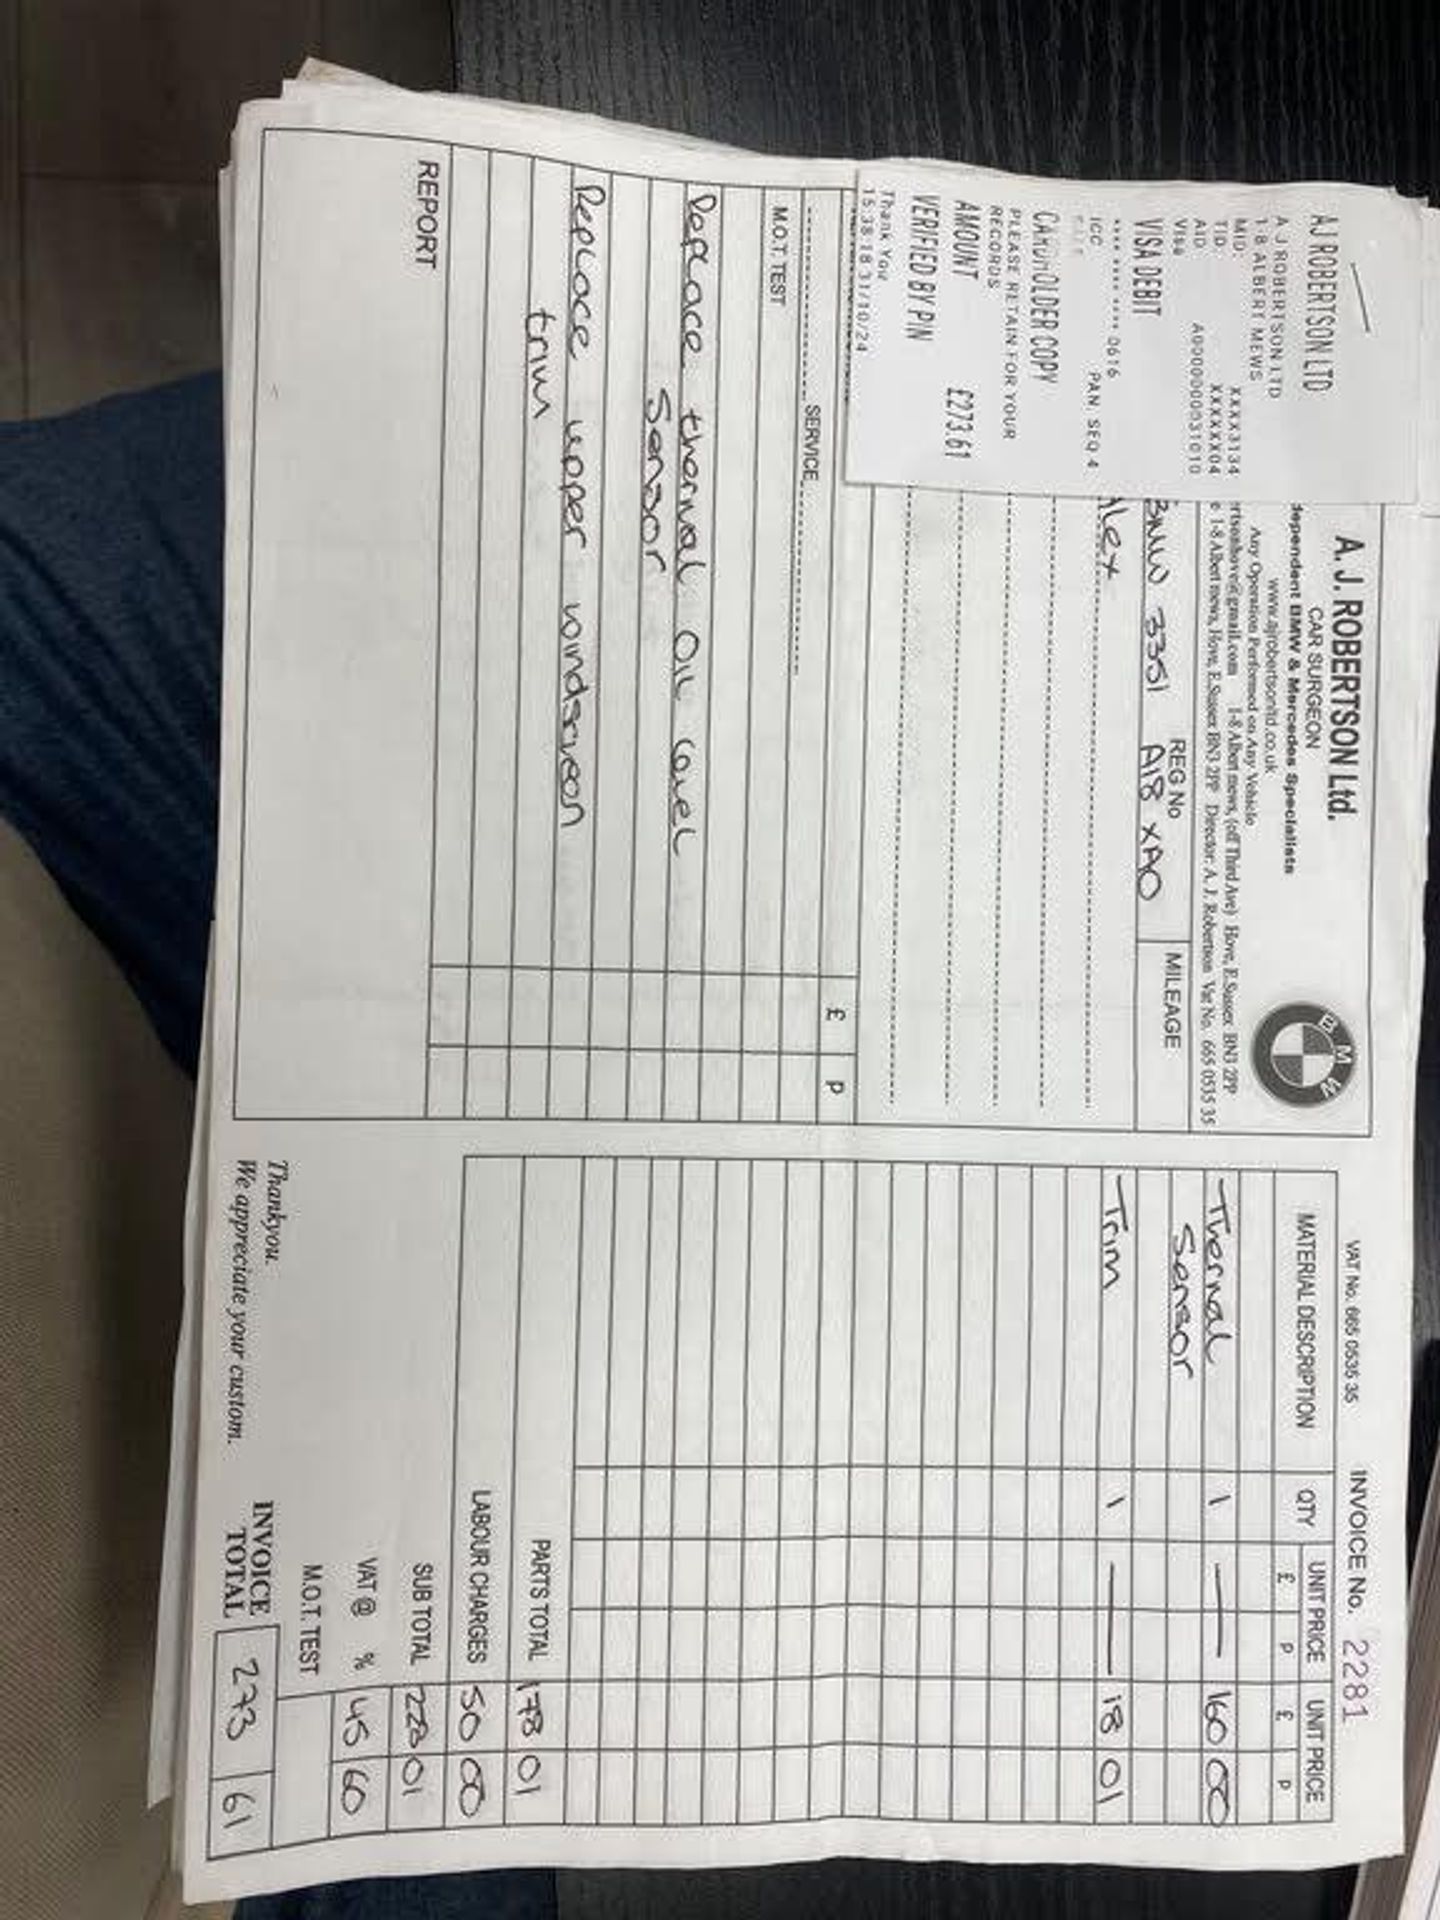 AJ ROBERTSON LTD
A J ROBERTSON LTD
1-8 ALBERT MEWS
MID: XXXX3134
TID: XXXXXX04
AID: A0000000031010
Visa
VISA DEBIT
**** **** **** 0616
ICC PAN. SEQ 4
CARDHOLDER COPY
PLEASE RETAIN FOR YOUR
RECORDS
AMOUNT £273.61
VERIFIED BY PIN
Thank You
15:38:18 31/10/24
A. J. ROBERTSON Ltd.
CAR SURGEON
dependent BMW & Mercedes Specialists
www.ajrobertsonltd.co.uk
Any Operation Performed on Any Vehicle
ertsonhove@gmail.com 1-8 Albert mews, (off Third Ave) Hove, E.Sussex BN3 2PP
e 1-8 Albert mews, Hove, E.Sussex BN3 2PP Director: A. J. Robertson Vat No. 665 0535 35
BMW
REG No MILEAGE
BMW 335i A18 XAO
Alex
£ p
SERVICE
M.O.T. TEST
Replace thermal oil level
Sensor
Replace upper windscreen
trim
REPORT
VAT No. 665 0535 35 INVOICE No. 2281
MATERIAL DESCRIPTION QTY UNIT PRICE UNIT PRICE
£ p £ p
Thermal 1 — 160 00
Sensor
Trim 1 — 18 01
PARTS TOTAL 178 01
LABOUR CHARGES 50 00
SUB TOTAL 228 01
VAT @ % 45 60
M.O.T. TEST
Thankyou.
We appreciate your custom.
INVOICE
TOTAL 273 61